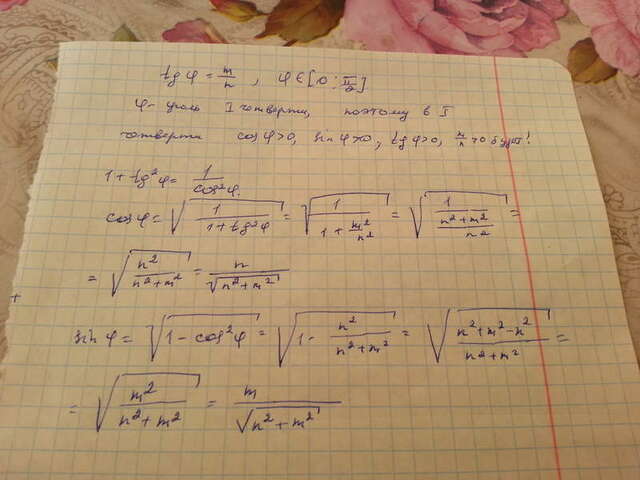 tg φ = m/n, φ ∈ [0; π/2]
φ - угол I четверти, поэтому в I
четверти cos φ>0, sin φ>0, tg φ>0, m/n >0 будет!
1 + tg²φ = 1/cos²φ.
cos φ = √(1/(1+tg²φ)) = √(1/(1+m²/n²)) = √(1/((n²+m²)/n²)) =
= √(n²/(n²+m²)) = n/√(n²+m²)
sin φ = √(1-cos²φ) = √(1-n²/(n²+m²)) = √((n²+m²-n²)/(n²+m²)) =
= √(m²/(n²+m²)) = m/√(n²+m²)